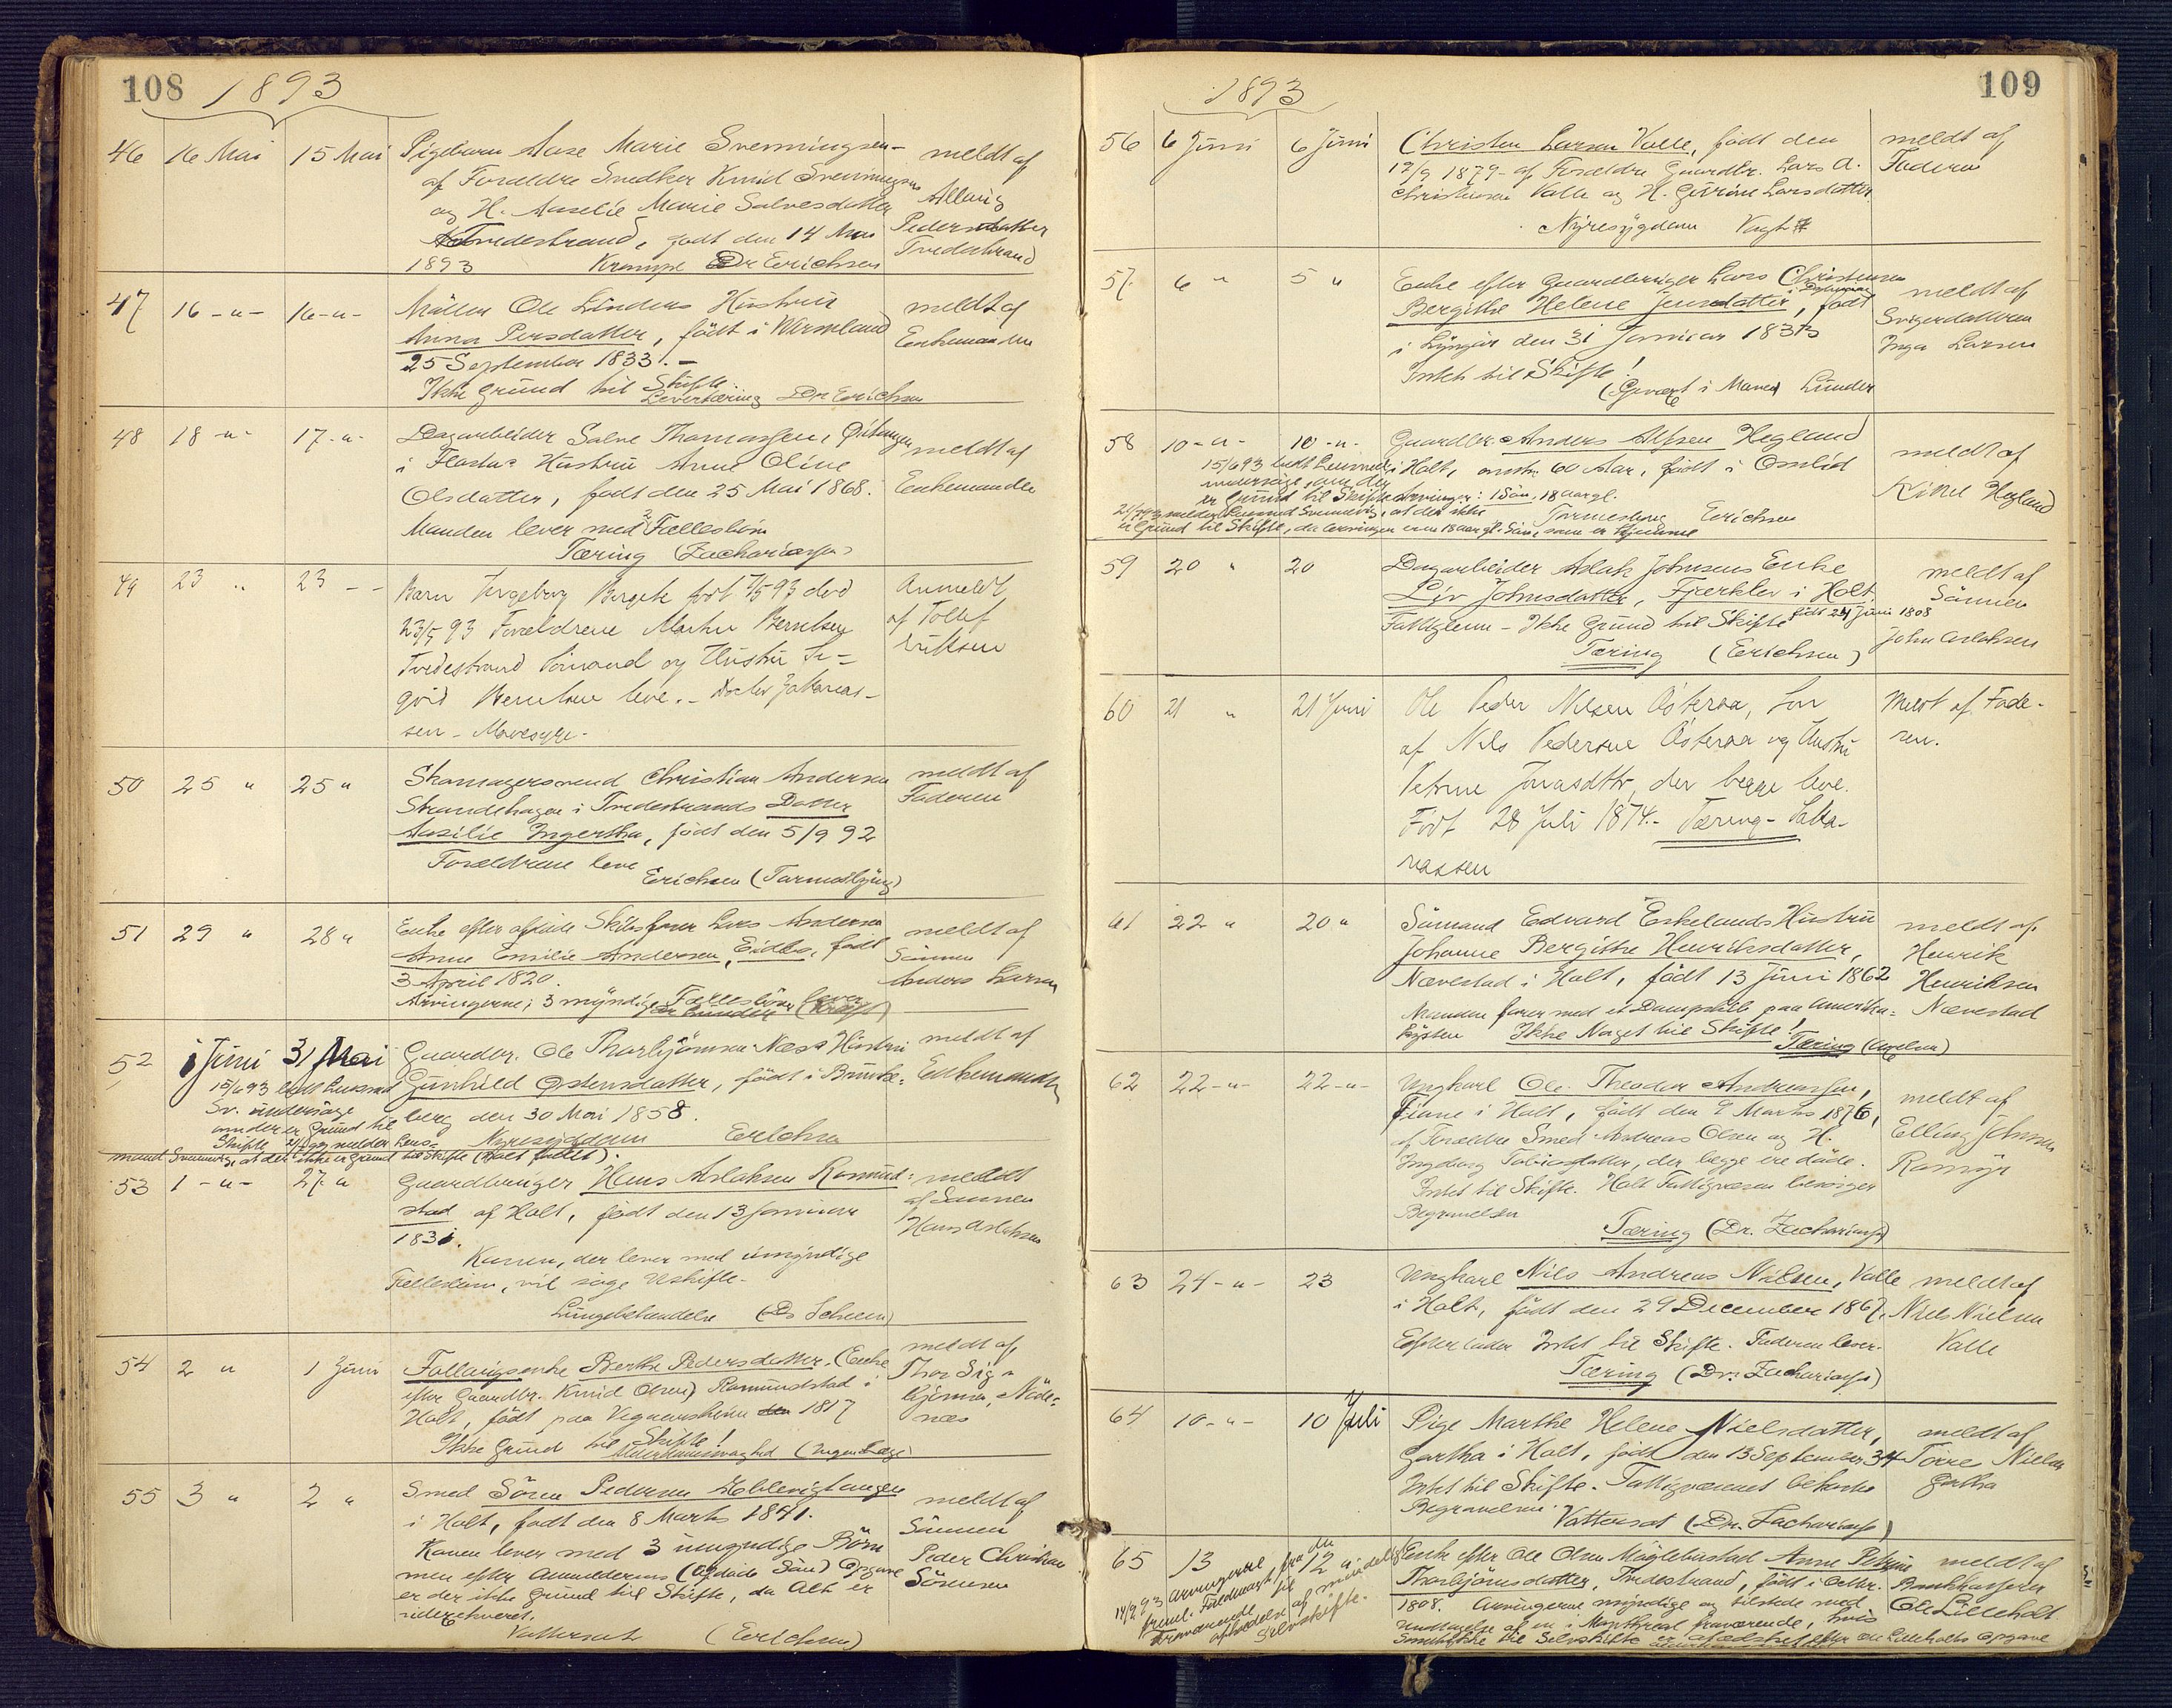 108 1893
46 16 Mai 15 Mai Pigebarn Aase Marie Svenningsen- meldt af
af Forældre Snedker Knud Svenningsen Allevig
og H. Amelie Marie Salvesdatter Pedersdatter
Tvedestrand, født den 14 Mai Tvedestrand
1893 Krampe Dr Erichsen
47 16 -u- 16 -u- Møller Ole Linders Hustru meldt af
Anna Persdatter, født i Wermland Enkemanden
25 September 1833. -
Ikke Grund til Skifte.
Leverbetændelse Dr Erichsen
48 18 -u- 17 -u- Dagarbeider Salve Thomassen, meldt af
i Flostas Hustru Anne Oline
Olsdatter, født den 25 Mai 1868. Enkemanden
Manden lever med 2 Fællesbørn
Tæring (Zachariassen)
49 23 " 23 - - Barn Ingeborg Bergete født 7/5 93 død Anmeldt
23/5 93 Forældrene Martin Berntsen af Tollef
Tvedestrand Sømand og Hustru In- Eriksen
gvid Berntsen leve. - Doctor Zakarias-
sen - Mavesyge -
50 25 " 25 " Skomagersvend Christian Andersen meldt af
Strandehagen i Tvedestrands Datter Faderen
Aasilie Ingertha, født den 5/9 92
Forældrene leve
Erichsen (Tarmslyng)
51 29 " 28 " Enke efter afdøde Skibsfører Lars Andersen meldt af
Anne Emilie Andersen, Eidbo, født Sønnen
3 April 1820. Anders Larsen
Arvingerne; 3 myndige Fællesbørn lever
52 1 Juni 31 Mai Gaardbr. Ole Thorbjørnsen Næss Hustru meldt af
15/6 93 bedt Lensmd Gunhild Østensdatter, født i Brunke- Enkemanden
Sv. undersøge berg den 30 Mai 1858.
om der er Grund til
Skifte 21/7 93 melder Lens- Nyresygdom Erichsen
mand Svenning. at der ikke er Grund til Skifte
53 1 -u- 27 u Gaardbruger Hans Aslaksen Romund- meldt
stad af Holt, født den 13 Januar af Sønnen
1831. Hans Aslaksen
Konen, der lever med umyndige
Fællesbørn, vil søge Uskifte -
Lungebetændelse (Dr Scheen)
54 2 u 1 Juni Follaugsenke Berthe Pedersdatter. (Enke meldt af
efter Gaardbr. Knud Olsen) Romundstad i Thor Sig-
Holt, født paa Vegaarsheien 1817 bjørnsen, Næde-
Ikke Grund til Skifte! næs
Alderdomssvaghed (Ingen Læge)
55 3 " 2 " Smed Søren Pedersen Hoblevigtangen meldt af
i Holt, født den 8 Marts 1841. Sønnen
Konen lever med 3 umyndige Børn Peder Christian
men efter Anmelderens (afdøde Søn) Opgave Sørensen
er der ikke Grund til Skifte, da Alt er
udexekveret.
Vattersot (Erichsen)
109 1893
56 6 Juni 6 Juni Christen Larsen Valle, født den meldt af
12/9 1879 - af Forældre Gaardbr. Lars A. Faderen
Christensen Valle og H. Gurine Larsdatter
Nyresygdom Vogt
57. 6 " 5 " Enke efter Gaardbruger Lars Christensen meldt af
Bergithe Helene Jensdatter, født Svigerdatteren
i Lyngør den 31 Januar 183 Inga Larsen
Intet til Skifte!
(Gevæxt i Maven) Lunder
58 10 -u- 10 -u- Gaardbr. Anders Alfsen Hegland meldt af
15/6 93 bedt Lensmd i Holt, omtr. 60 Aar, født i Omlid Kittel Hegland
undersøge, om der
er Grund til Skifte Arvinger: 1 Søn, 18 aargl.
21/7 93 melder Lensmd Svenning, at der ikke Erichsen
er Grund til Skifte, da Arvingen er en 18 aar gl. Søn, som er hjemme
59 20 " 20 Dagarbeider Aslak Johnsens Enke meldt af
Liv Johnsdatter, Fjerklev i Holt. Sønnen
Fattiglem - Ikke Grund til Skifte født 24 Juni 1808 John Aslaksen
Tæring (Erichsen)
60 21 " 21 Juni Ole Peder Nilsen Østeraa, Søn Meldt af Fade-
af Nils Pedersen Østeraa og Hustru ren.
Petrine Jonasdttr, der begge leve.
Født 28 Juli 1874. - Tæring - Saka-
riassen
61 22 " 20 " Sømand Edvard Eskelands Hustru meldt af
Johanne Bergithe Henriksdatter, Henrik
Nævestad i Holt, født 13 Juni 1862 Henriksen
Manden farer med et Dampskib paa Amerika- Nævestad
kysten Ikke Noget til Skifte!
Tæring
62 22 -u- 22 -u- Ungkarl Ole Theodor Andreassen, meldt af
Fiane i Holt, født den 9 Marts 1876, Elling Johnsen
af Forældre Smed Andreas Olsen og H. Ramyr
Ingeborg Tobiasdatter, der begge ere døde.
Intet til Skifte. Holt Fattigvæsen besørger
Begravelsen
Tæring (Dr. Zachariassen)
63 24 -u- 23 Ungkarl Nils Andreas Nielsen, Valle meldt af
i Holt, født den 29 December 1867. Niels Nielsen
Efterlader Intet til Skifte. Faderen lever. Valle
Tæring (Dr. Zachariassen)
64 10 -u- 10 Juli Pige Marthe Helene Nielsdatter, meldt af
Gartha i Holt, født den 13 September 34 Torre Nielsen
Intet til Skifte. Fattigvæsenet bekoster Gartha
Begravelsen.
Vattersot (Dr. Zachariassen)
65 13 12 u Enke efter Ole Olsen Møglebustad Anne Petrine meldt af
14/9 93 Arvingerne Thorbjørnsdatter, Tvedestrand, født i Octbr. Bankkasserer
freml. Fuldmagt fra den 1808. Arvingerne myndige og tilstede med Ole Lilleholt
fraværende til Undtagelse af en i Menthreal fraværende, hvis
Selvskifte. Samtykke til Selvskifte efter Ole Lilleholts Opgave